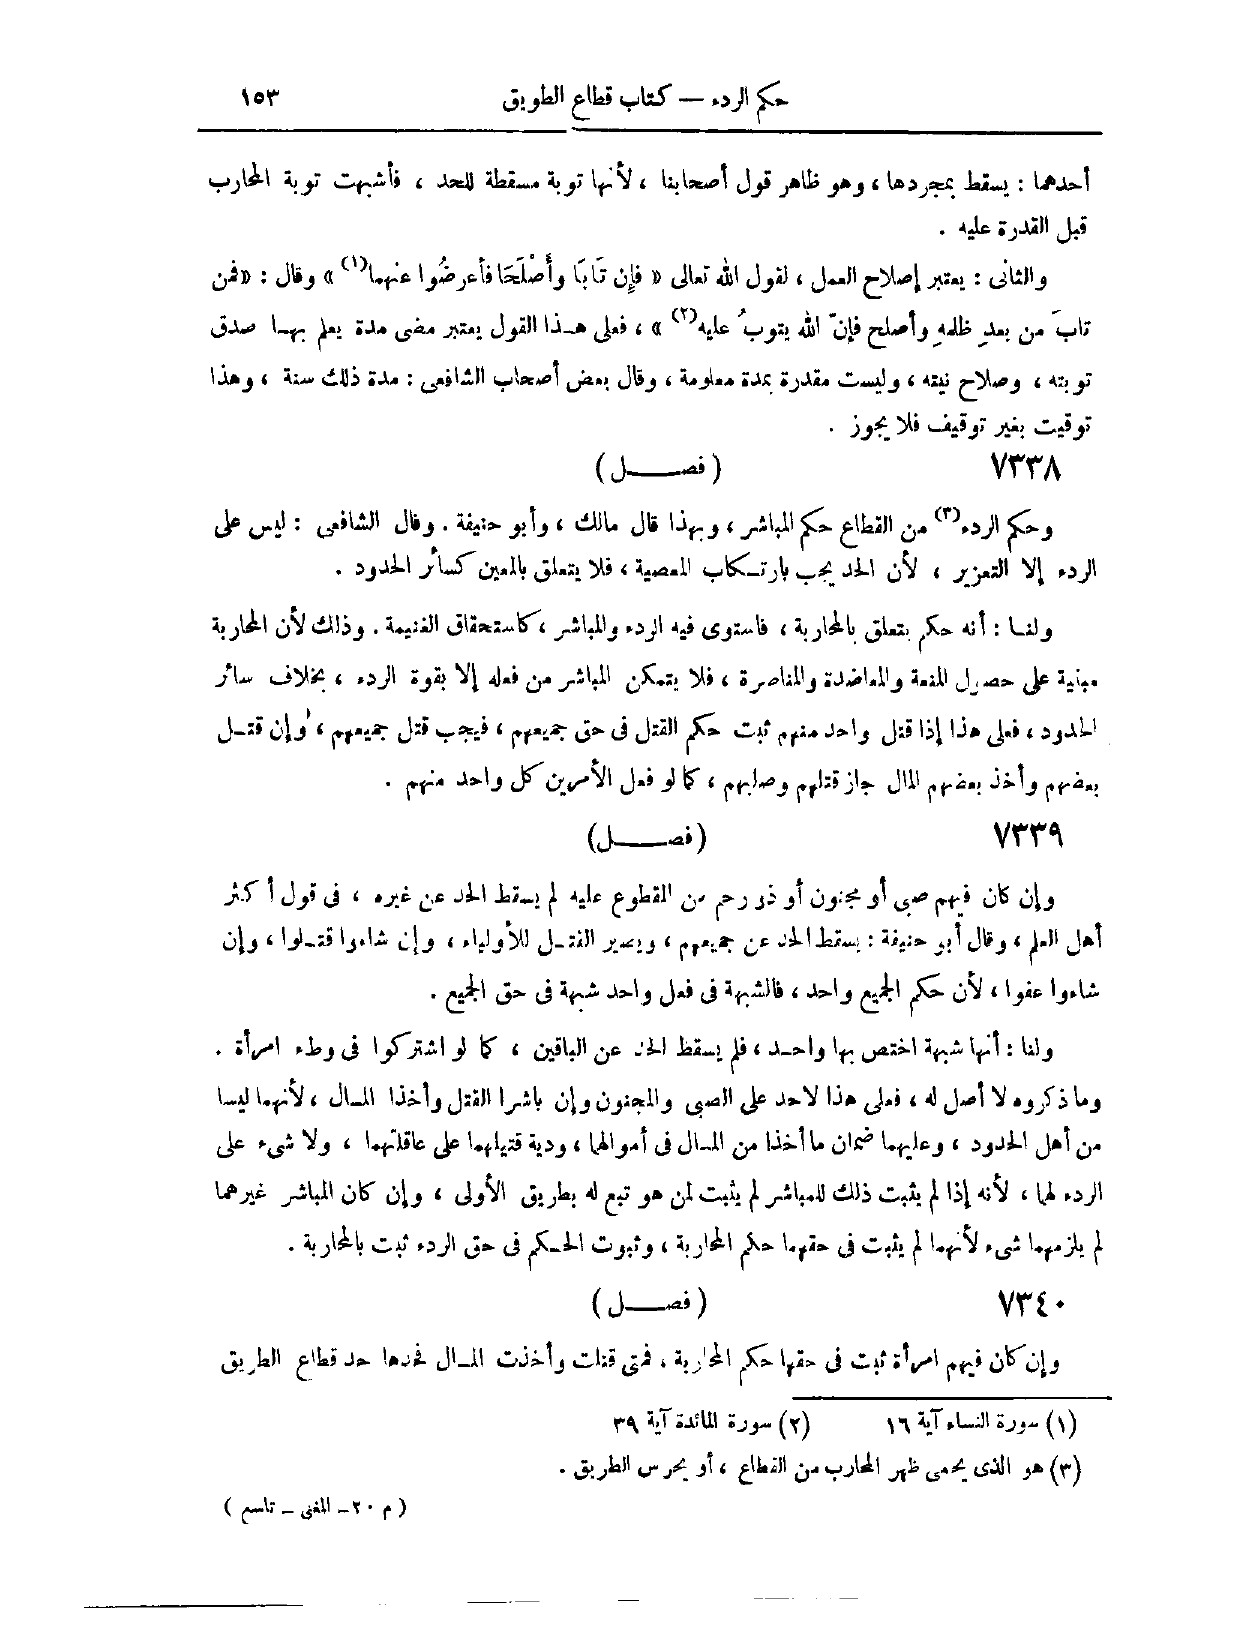 حكم الردء — كتاب قطاع الطريق ١٥٣
أحدهما : يسقط بمجردها ، وهو ظاهر قول أصحابنا ، لأنها توبة مسقطة للحد ، فأشبهت توبة المحارب
قبل القدرة عليه .
والثانى : يعتبر إصلاح العمل ، لقول الله تعالى « فإن تَابَا وأَصْلَحَا فأعرضُوا عنهما(١) » وقال : «فمن
تابَ من بعدِ ظلمهِ وأصلح فإنّ الله يتوبُ عليه(٢) » ، فعلى هـذا القول يعتبر مضى مدة يعلم بهـا صدق
توبته ، وصلاح نيته ، وليست مقدرة بمدة معلومة ، وقال بعض أصحاب الشافعى : مدة ذلك سنة ، وهذا
توقيت بغير توقيف فلا يجوز .
٧٣٣٨ ( فصـــــل )
وحكم الردء(٣) من القطاع حكم المباشر ، وبهذا قال مالك ، وأبو حنيفة . وقال الشافعى : ليس على
الردء إلا التعزير ، لأن الحد يجب بارتـكاب المعصية ، فلا يتعلق بالمعين كسائر الحدود .
ولنـا : أنه حكم يتعلق بالمحاربة ، فاستوى فيه الردء والمباشر ، كاستحقاق الغنيمة . وذلك لأن المحاربة
مبنية على حصول المنعة والمعاضدة والمناصرة ، فلا يتمكن المباشر من فعله إلا بقوة الردء ، بخلاف سائر
الحدود ، فعلى هذا إذا قتل واحد منهم ثبت حكم القتل فى حق جميعهم ، فيجب قتل جميعهم ، وإن قتـل
بعضهم وأخذ بعضهم المال جاز قتلهم وصلبهم ، كما لو فعل الأمرين كل واحد منهم .
٧٣٣٩ (فصـــــل)
وإن كان فيهم صبى أو مجنون أو ذو رحم من المقطوع عليه لم يسقط الحد عن غيره ، فى قول أكثر
أهل العلم ، وقال أبو حنيفة : يسقط الحد عن جميعهم ، ويصير القتـل للأولياء ، إن شاءوا قتـلوا ، وإن
شاءوا عفوا ، لأن حكم الجميع واحد ، فالشبهة فى فعل واحد شبهة فى حق الجميع .
ولنا : أنها شبهة اختص بها واحـد ، فلم يسقط الحد عن الباقين ، كما لو اشتركوا فى وطء امرأة .
وما ذكروه لا أصل له ، فعلى هذا لاحد على الصبى والمجنون وإن باشرا القتل وأخذا المـال ، لأنهما ليسا
من أهل الحدود ، وعليهما ضمان ما أخذا من المـال فى أموالهما ، ودية قتيلهما على عاقلتهما ، ولا شىء على
الردء لهما ، لأنه إذا لم يثبت ذلك للمباشر لم يثبت لمن هو تبع له بطريق الأولى ، وإن كان المباشر غيرهما
لم يلزمهما شىء لأنهما لم يثبت فى حقهما حكم المحاربة ، وثبوت الحـكم فى حق الردء ثبت بالمحاربة .
٧٣٤٠ ( فصـــــل )
وإن كان فيهم امرأة ثبت فى حقها حكم المحاربة ، فمتى قتلت وأخذت المـال فحدها حد قطاع الطريق
(١) سورة النساء آية ١٦ (٢) سورة المائدة آية ٣٩
(٣) هو الذى يحمى ظهر المحارب من القطاع ، أو يحرس الطريق .
( م ٢٠ – المغنى – تاسع )